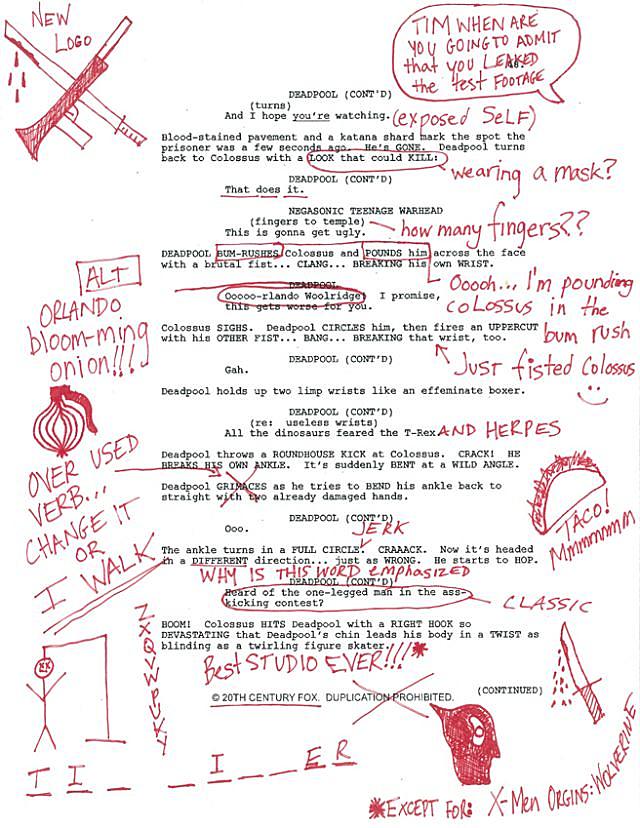 NEW
LOGO
TIM WHEN ARE
YOU GOING TO ADMIT
that YOU LEAKED
the test FOOTAGE
DEADPOOL (CONT'D)
(turns)
And I hope you're watching.
(exposed SeLF)
Blood-stained pavement and a katana shard mark the spot the
prisoner was a few seconds ago. He's GONE. Deadpool turns
back to Colossus with a LOOK that could KILL:
wearing a mask?
DEADPOOL (CONT'D)
That does it.
NEGASONIC TEENAGE WARHEAD
(fingers to temple)
This is gonna get ugly.
how many fingers??
DEADPOOL BUM-RUSHES Colossus and POUNDS him across the face
with a brutal fist... CLANG... BREAKING his own WRIST.
Ooooh... I'm pounding
coLossus in the
bum rush
ALT
ORLANDO
bloom-ming
onion!!!
DEADPOOL
Ooooo-rlando Woolridge! I promise,
this gets worse for you.
Colossus SIGHS. Deadpool CIRCLES him, then fires an UPPERCUT
with his OTHER FIST... BANG... BREAKING that wrist, too.
Just fisted Colossus
DEADPOOL (CONT'D)
Gah.
Deadpool holds up two limp wrists like an effeminate boxer.
DEADPOOL (CONT'D)
(re: useless wrists)
All the dinosaurs feared the T-Rex.
AND HERPES
Deadpool throws a ROUNDHOUSE KICK at Colossus. CRACK! HE
BREAKS HIS OWN ANKLE. It's suddenly BENT at a WILD ANGLE.
OVER USED
VERB...
CHANGE IT
OR
I WALK
Deadpool GRIMACES as he tries to BEND his ankle back to
straight with two already damaged hands.
TACO!
Mmmmmmm
DEADPOOL (CONT'D)
Ooo.
JERK
The ankle turns in a FULL CIRCLE. CRAAACK. Now it's headed
in a DIFFERENT direction... just as WRONG. He starts to HOP.
WHY IS THIS WORD emphasized
DEADPOOL (CONT'D)
Heard of the one-legged man in the ass-
kicking contest?
CLASSIC
BOOM! Colossus HITS Deadpool with a RIGHT HOOK so
DEVASTATING that Deadpool's chin leads his body in a TWIST as
blinding as a twirling figure skater.
Best STUDIO EVER!!!*
(CONTINUED)
© 20TH CENTURY FOX. DUPLICATION PROHIBITED.
Z
X
Q
V
W
P
U
K
Y
T I _ _ I _ _ E R
*EXCEPT FOR: X-Men ORGINS: WOLVERINE